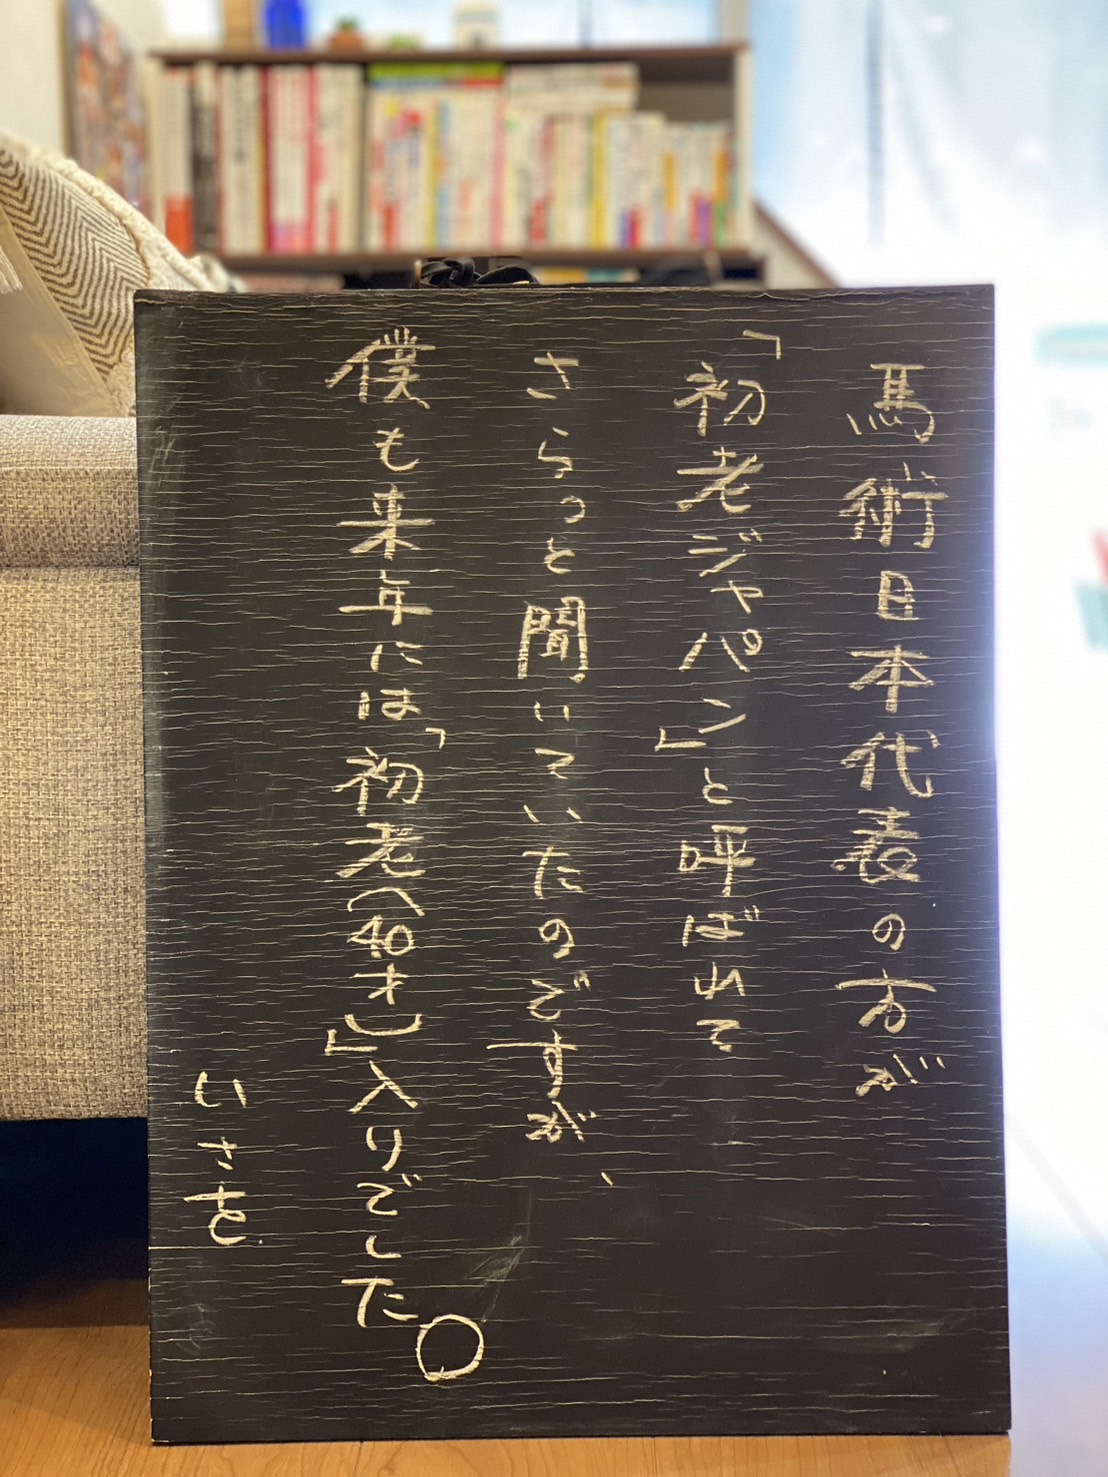 馬術日本代表の方が
「初老ジャパン」と呼ばれて
さらっと聞いていたのですが、
僕も来年には「初老(40才)」入りでした。
いさを